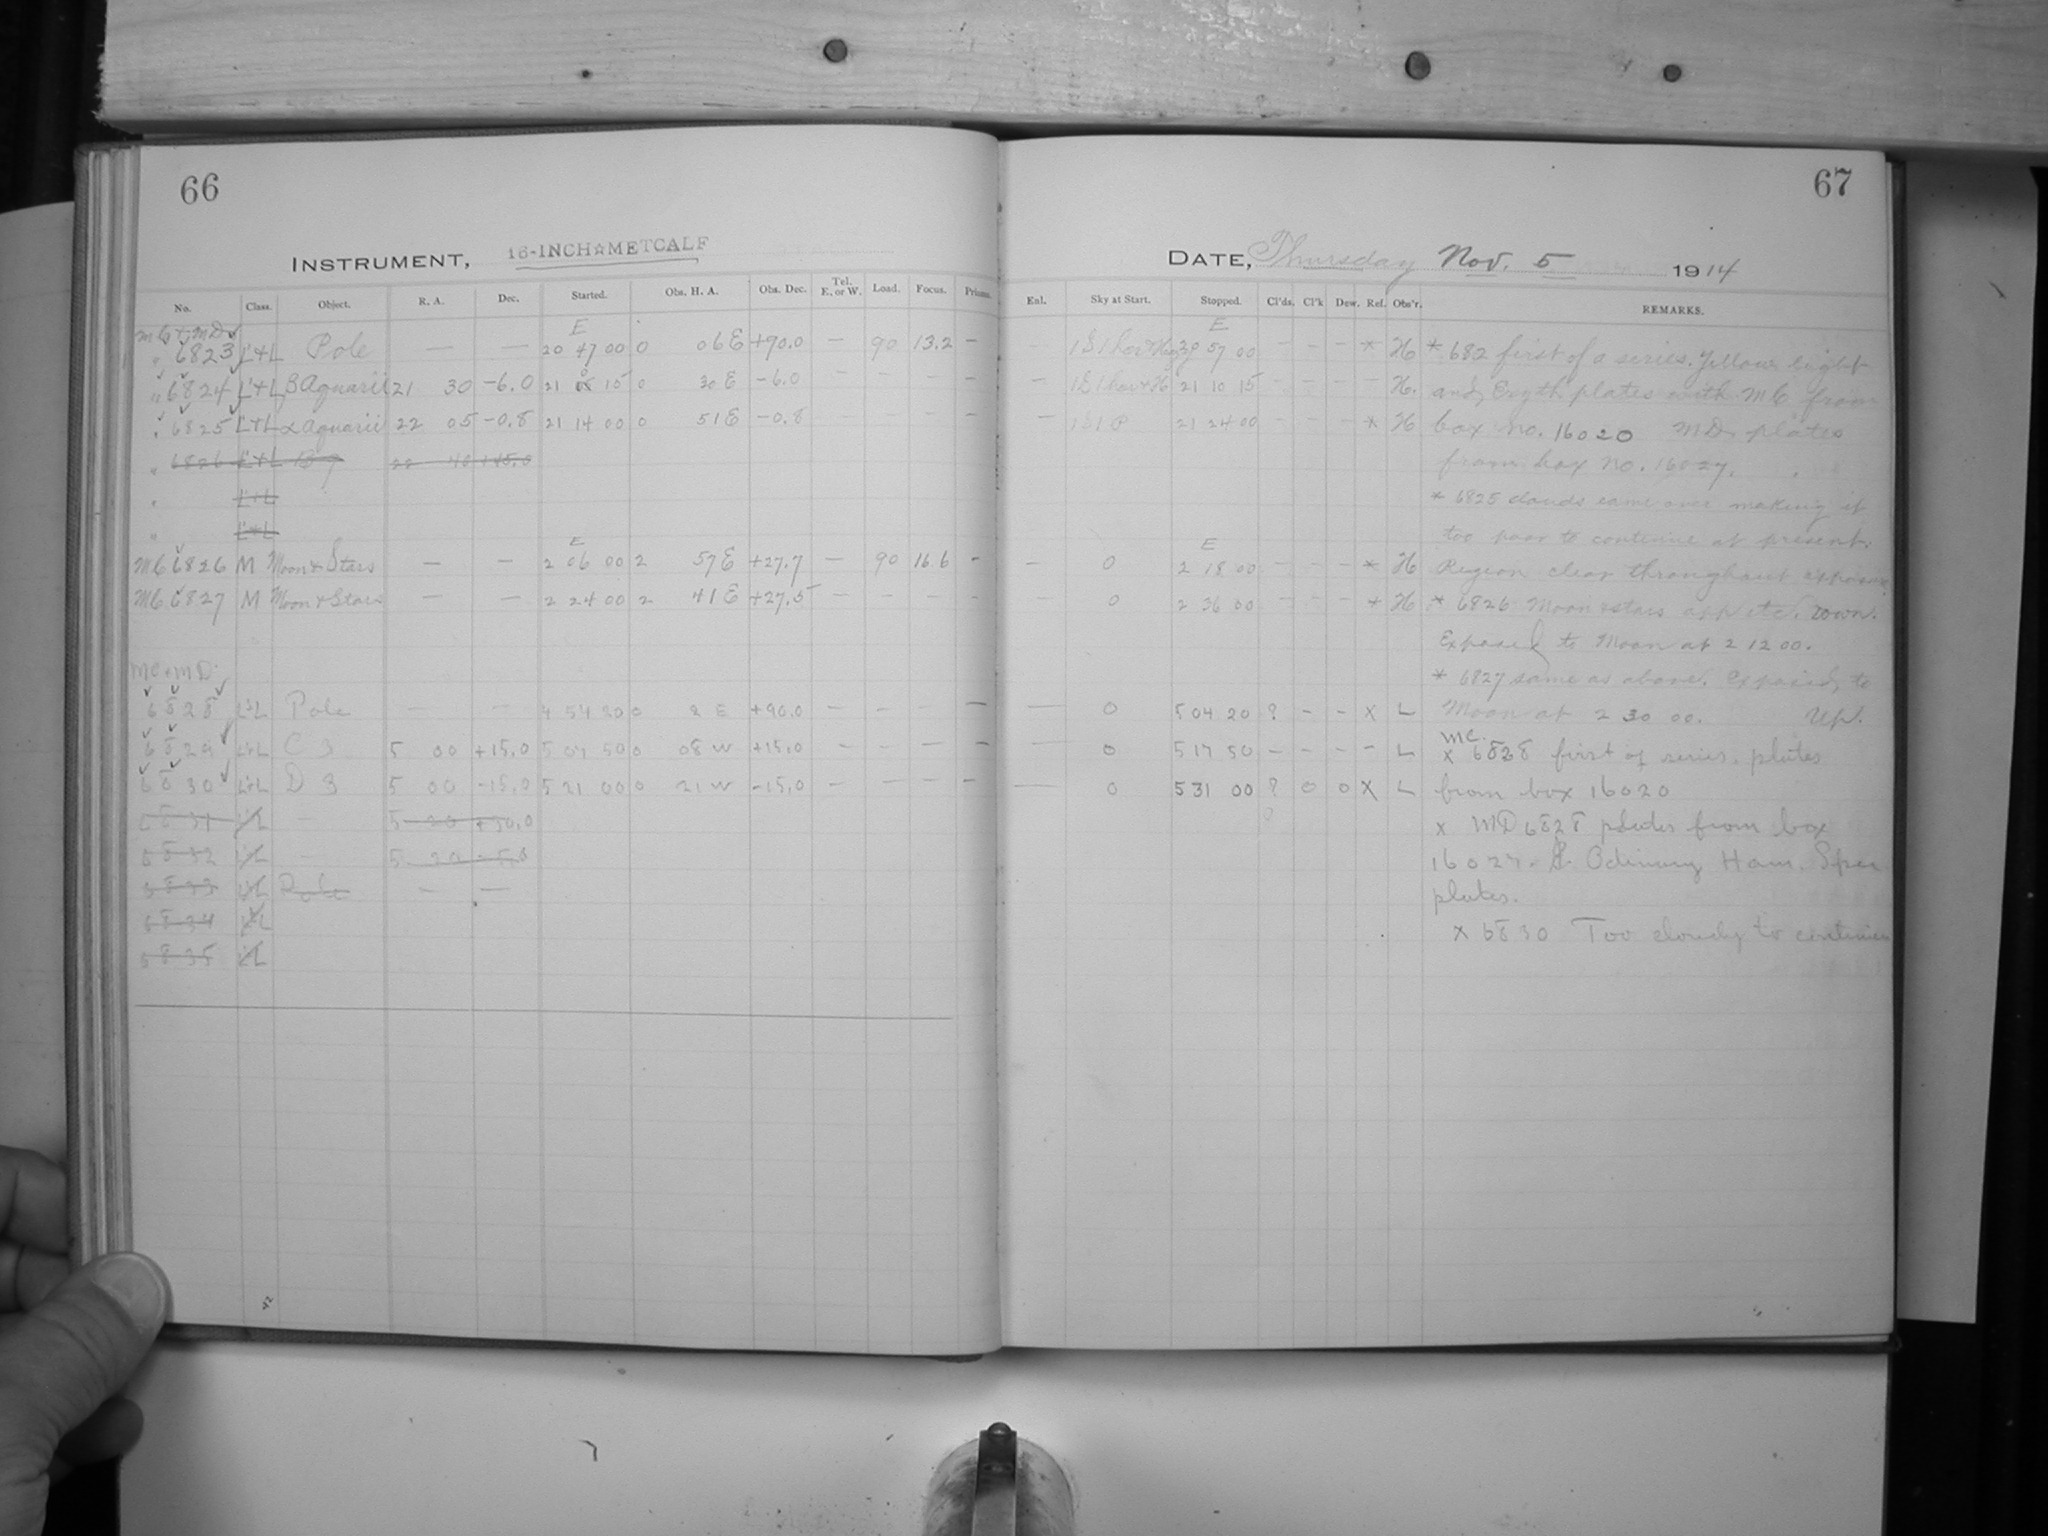 66
INSTRUMENT, 16-INCH☆METCALF
No. Class. Object. R. A. Dec. Started. Obs. H. A. Obs. Dec. Tel. E. or W. Load. Focus. Prisms.
MC + MD
E
" 6823 L+L Pole — — 20 47 00 0 06 E +90.0 — 90 13.2 —
" 6824 L+L β Aquarii 21 30 -6.0 21 15 0 30 E -6.0 — — — —
" 6825 L+L α Aquarii 22 05 -0.8 21 14 00 0 51 E -0.8 — — — —
" 6826 L+L 22 40
" L+L
" L+L
E
MC 6826 M Moon + Stars — — 2 06 00 2 57 E +27.7 — 90 16.6 -
MC 6827 M Moon + Stars — — 2 24 00 2 41 E +27.5
MC + MD
6828 L+L Pole — — 4 54 20 0 2 E +90.0 — — — —
6829 L+L C 3 5 00 +15.0 5 07 50 0 08 W +15.0 — — — —
6830 L+L D 3 5 00 -15.0 5 21 00 0 21 W -15.0 — — — —
6831 L+L — 5 20 +30.0
6832 L+L — 5 20
6833 L+L Pole — —
6834 L+L
6835 L+L
67
DATE, Thursday Nov. 5 1914
Enl. Sky at Start. Stopped. Cl'ds. Cl'k Dew. Ref. Obs'r. REMARKS.
E
20 57 00 - - - * H * 682 first of a series. Yellow light
21 10 15 - - - - H. and Eryth plates with MC from
— 1S1P 21 24 00 - - - * H box no. 16020 MD plates
from box no. 16027.
* 6825 clouds came over making it
too poor to continue at present.
E
— 0 2 18 00 - - - * H Region clear throughout exposure
0 2 36 00 - - - * H * 6826 Moon + stars app etc. down.
Exposed to Moon at 2 12 00.
* 6827 same as above. Exposed to
— 0 5 04 20 ? - - x L Moon at 2 30 00. Up.
MC
— 0 5 17 50 - - - - L x 6828 first of series. plates
— 0 5 31 00 ? 0 0 X L from box 16020
x MD 6828 plates from box
16027. Ordinary Ham. Spec
plates.
x 6830 Too cloudy to continue